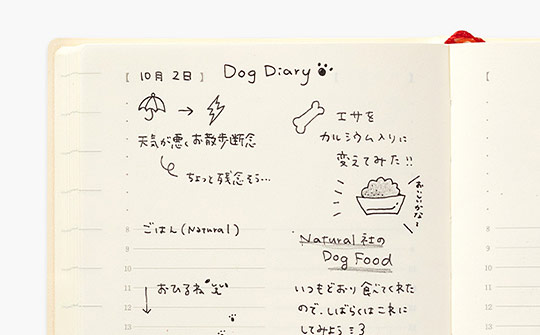 [ 10月 2日 ] Dog Diary
天気が悪くお散歩断念
ちょって残念そう…
エサを
カルシウム入りに
変えてみた!!
おいしいかな~
8 ごはん(Natural)
9
10
11 おひるね
12
13
Natural社の
Dog Food
いつもどおり食べてくれた
ので、しばらくはこれに
してみよう